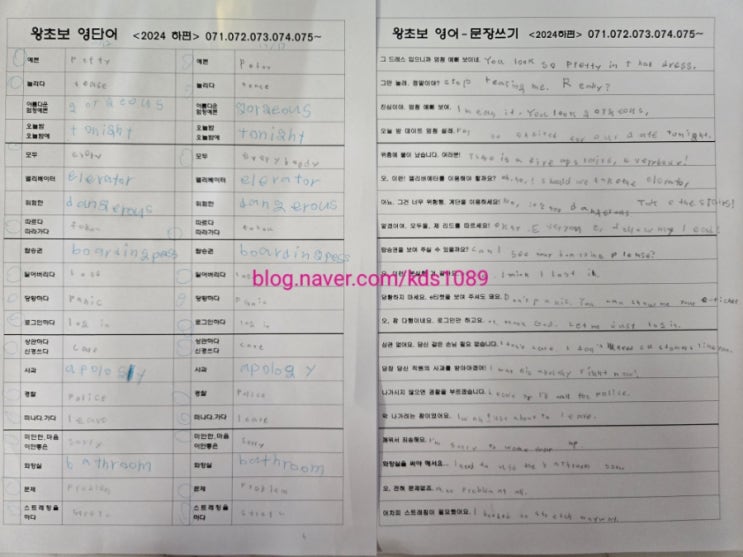 왕초보 영단어 <2024 하편> 071.072.073.074.075~
예쁜 Pretty 예쁜
놀리다 tease 놀리다 tease
아름다운 엄청예쁜 gorgeous 아름다운 엄청예쁜 gorgeous
오늘밤 오늘밤에 tonight 오늘밤 오늘밤에 tonight
모두 모두 everybody
엘리베이터 elevator 엘리베이터 elevator
위험한 dangerous 위험한 dangerous
따르다 따라가다 따르다 따라가다
탑승권 boardingpass 탑승권 boardingpass
잃어버리다 lose 잃어버리다
당황하다 Panic 당황하다 Panic
로그인하다 log in 로그인하다 log in
상관하다 신경쓰다 care 상관하다 신경쓰다 care
사과 apology 사과 apology
경찰 Police 경찰 Police
떠나다.가다 leave 떠나다.가다 leave
미안한, 마음이안좋은 sorry 미안한, 마음이안좋은 sorry
화장실 bathroom 화장실 bathroom
문제 Problem 문제 Problem
스트레칭을 하다 스트레칭을 하다
왕초보 영어-문장쓰기 <2024하편> 071.072.073.074.075~
그 드레스 입으니까 엄청 예뻐 보이네. You look so pretty in that dress.
그만 놀려. 정말이야? stop teasing me. Really?
진심이야. 엄청 예뻐 보여. I mean it. You look gorgeous.
오늘 밤 데이트 엄청 설레. so excited for our date tonight.
위층에 불이 났습니다. 여러분! There is a fire upstairs, everybody!
오, 이런! 엘리베이터를 이용해야 할까요? Oh, no! should we take the elevator
아뇨, 그건 너무 위험해. 계단을 이용하세요! No, too dangerous Take the stairs!
알겠어요, 모두들, 제 리드를 따르세요! Okay. Everybody, follow my lead!
탑승권을 보여 주실 수 있을까요? Can I see your boarding please?
오, 이런! I think I lost it.
당황하지 마세요. e티켓을 보여 주셔도 돼요. Don't panic. You can show me your e-ticket
오, 참 다행이네요. 로그인만 하고요. Let me just log in.
상관 없어요. 당신 같은 손님 필요 없습니다. I don't care. I don't need customers like you.
당장 당신 직원의 사과를 받아야겠어! apology right now!
나가시지 않으면 경찰을 부르겠습니다. Leave or I'll call the police.
막 나가려는 참이었어요. I was just about to leave.
깨워서 죄송해요. I'm sorry to wake you up
화장실을 써야 해서요... I need to use the bathroom
오, 전혀 문제없죠. no problem at all.
어차피 스트레칭이 필요했어요. I needed to stretch anyway.
blog.naver.com/kds1089